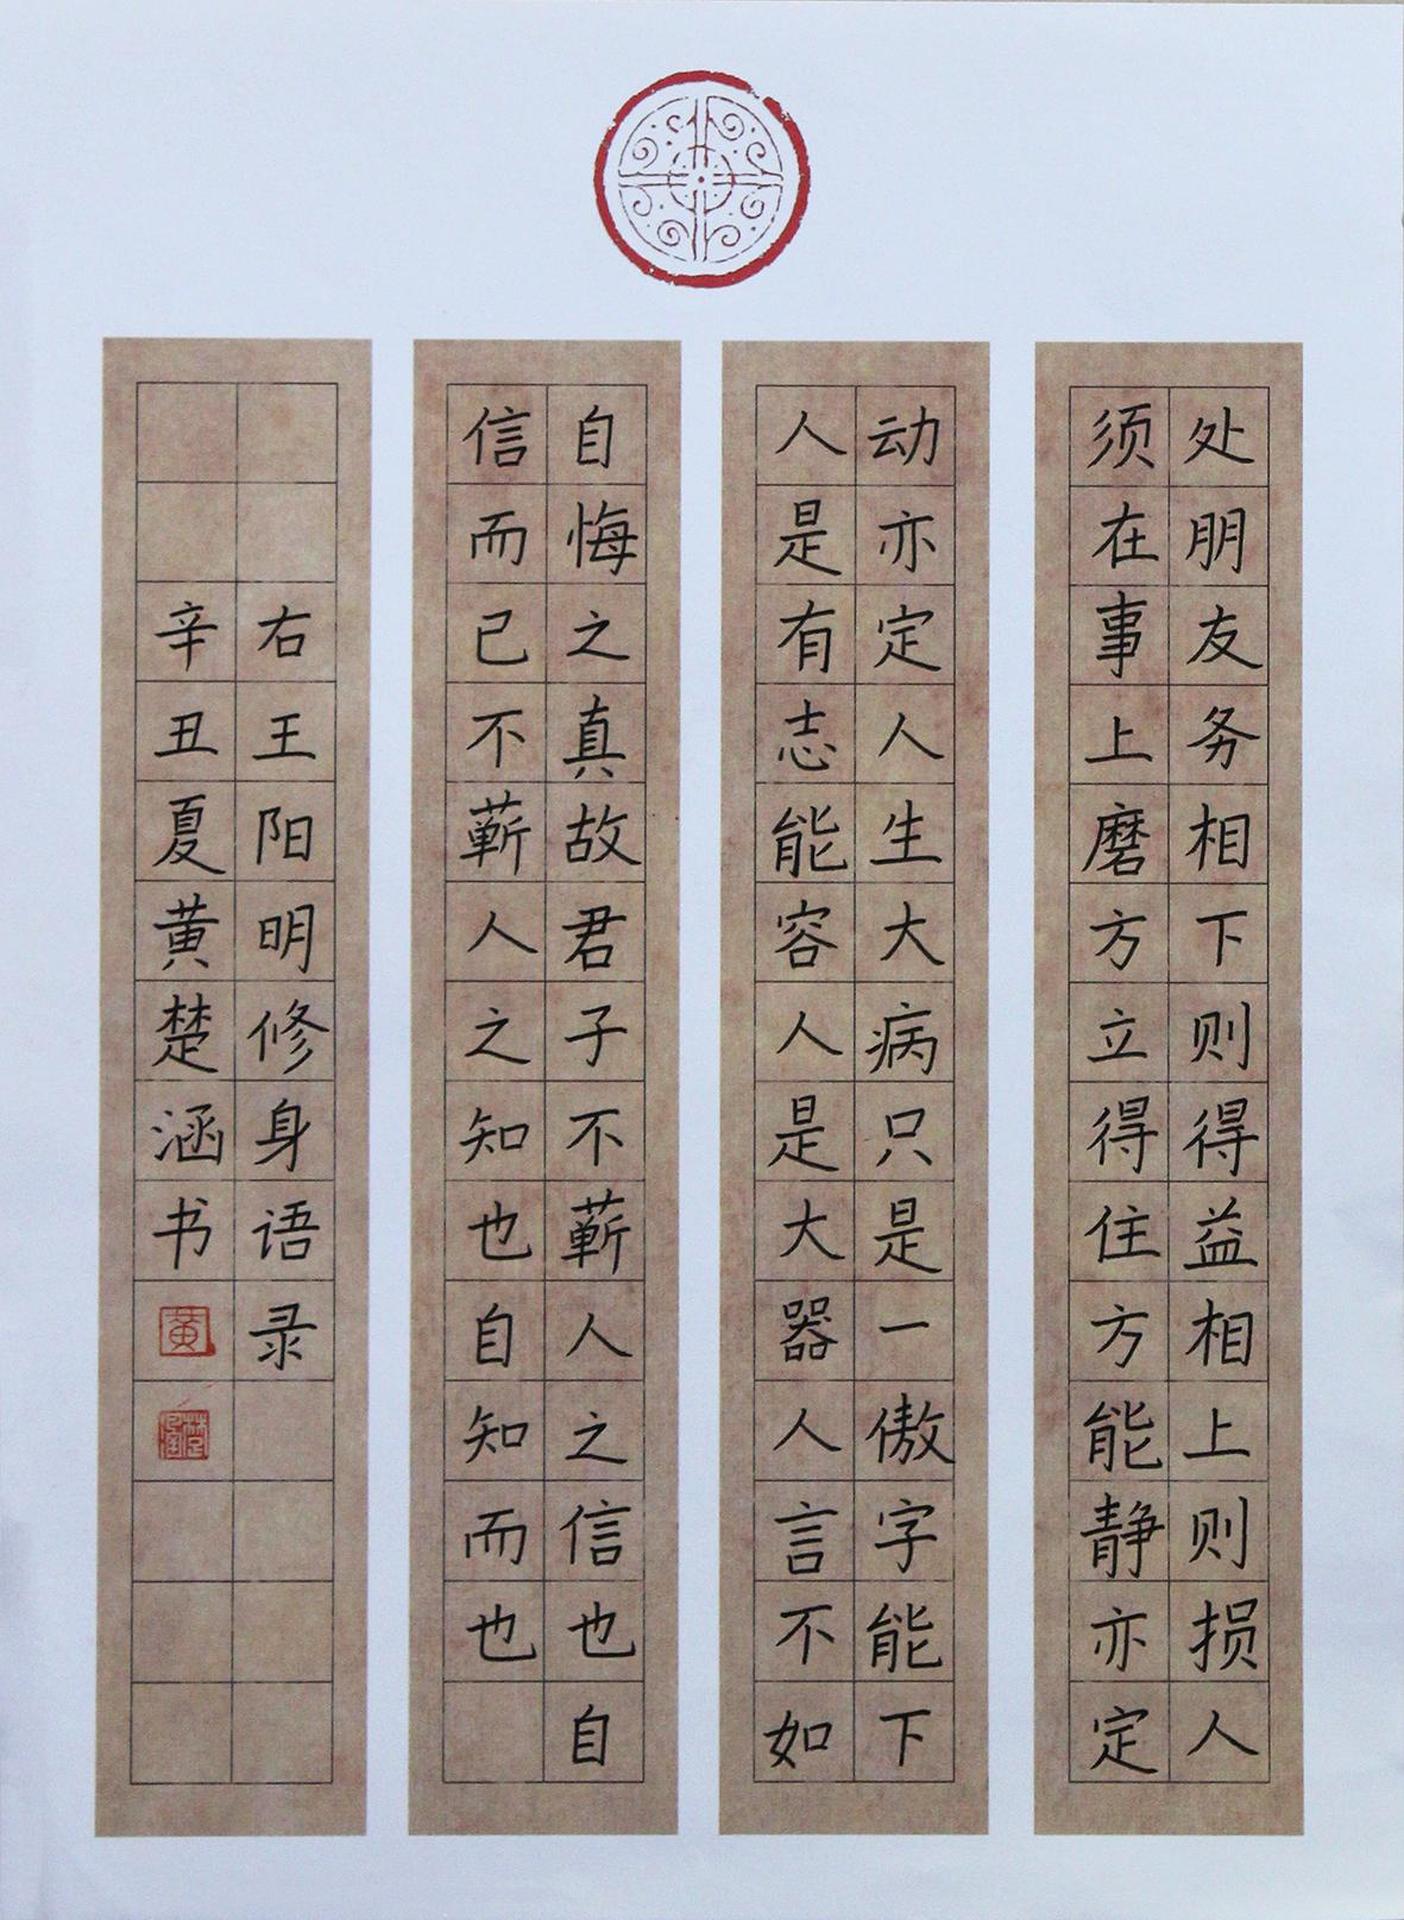 处朋友务相下则得益相上则损人
须在事上磨方立得住方能静亦定
动亦定人生大病只是一傲字能下
人是有志能容人是大器人言不如
自悔之真故君子不蕲人之信也自
信而已不蕲人之知也自知而也
右王阳明修身语录
辛丑夏黄楚涵书
黄
楚涵